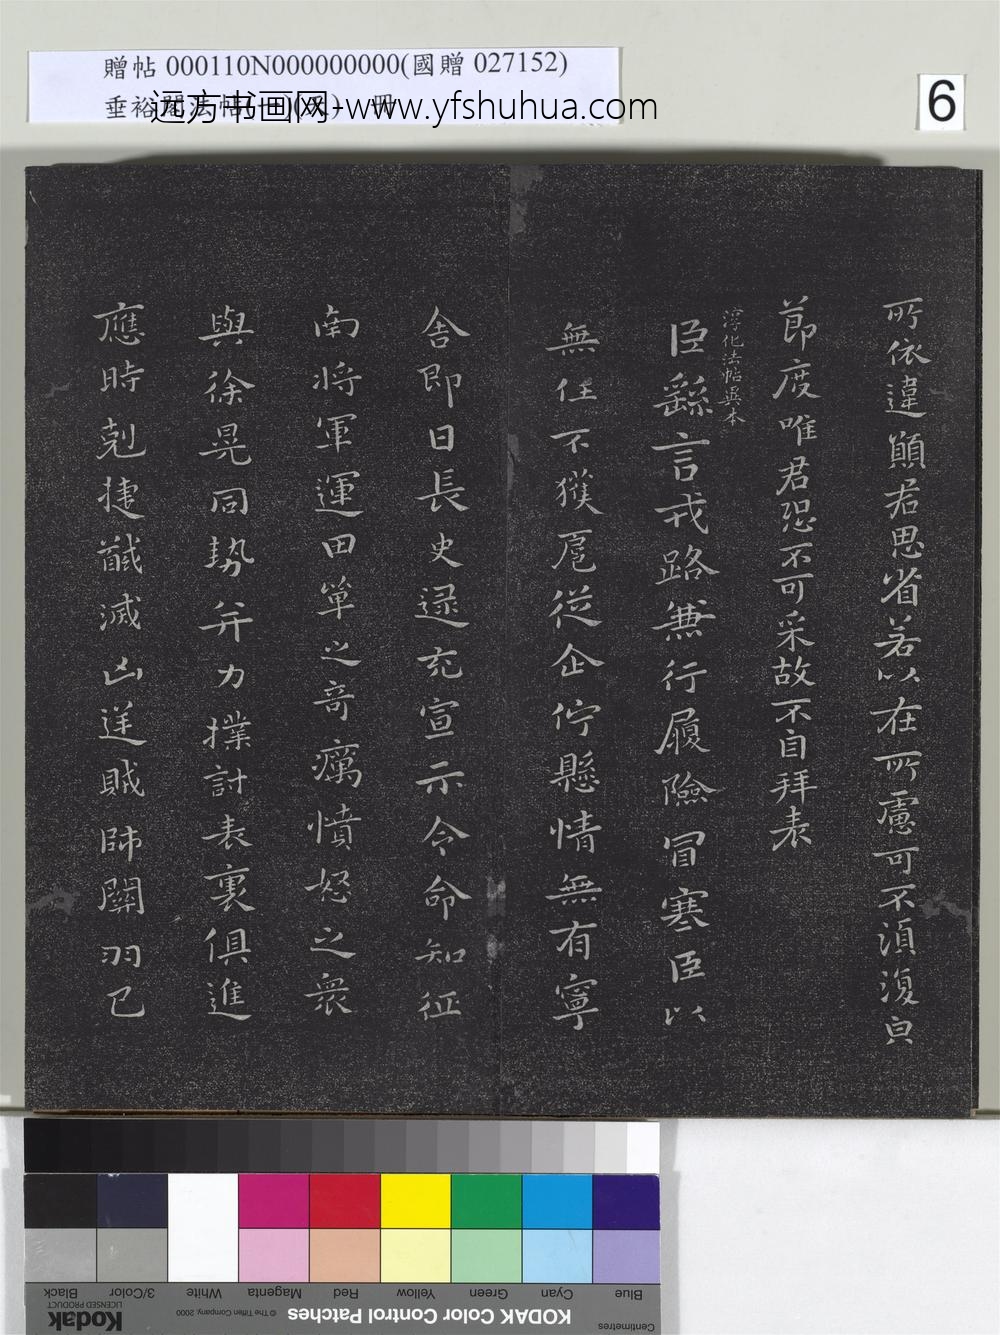 贈帖 000110N000000000(國贈 027152)
垂裕閣法帖(一)(文) 冊
远方书画网-www.yfshuhua.com
6
所依違願君思省若以在所慮可不須復白
節度唯君恐不可采故不自拜表
淳化法帖真本
臣繇言戎路兼行履險冒寒臣以
無任不獲扈從企佇懸情無有寧
舍即日長史逯充宣示令命知征
南將軍運田單之奇厲憤怒之衆
與徐晃同勢并力撲討表裏俱進
應時剋捷馘滅凶逆賊帥關羽已
Blue Cyan Green Yellow Red Magenta White 3/Color Black
Centimetres
KODAK Color Control Patches
© The Tiffen Company, 2000
Kodak
LICENSED PRODUCT